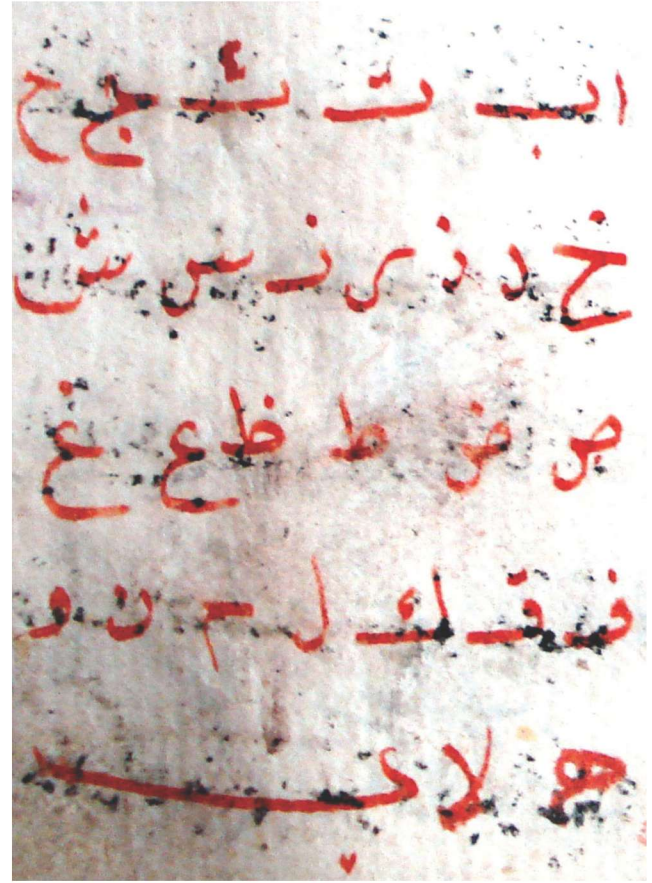 ا ب ت ث ج ح
خ د ذ ر ز س ش
ص ض ط ظ ع غ
ف ق ك ل م ن و
ه لا ي